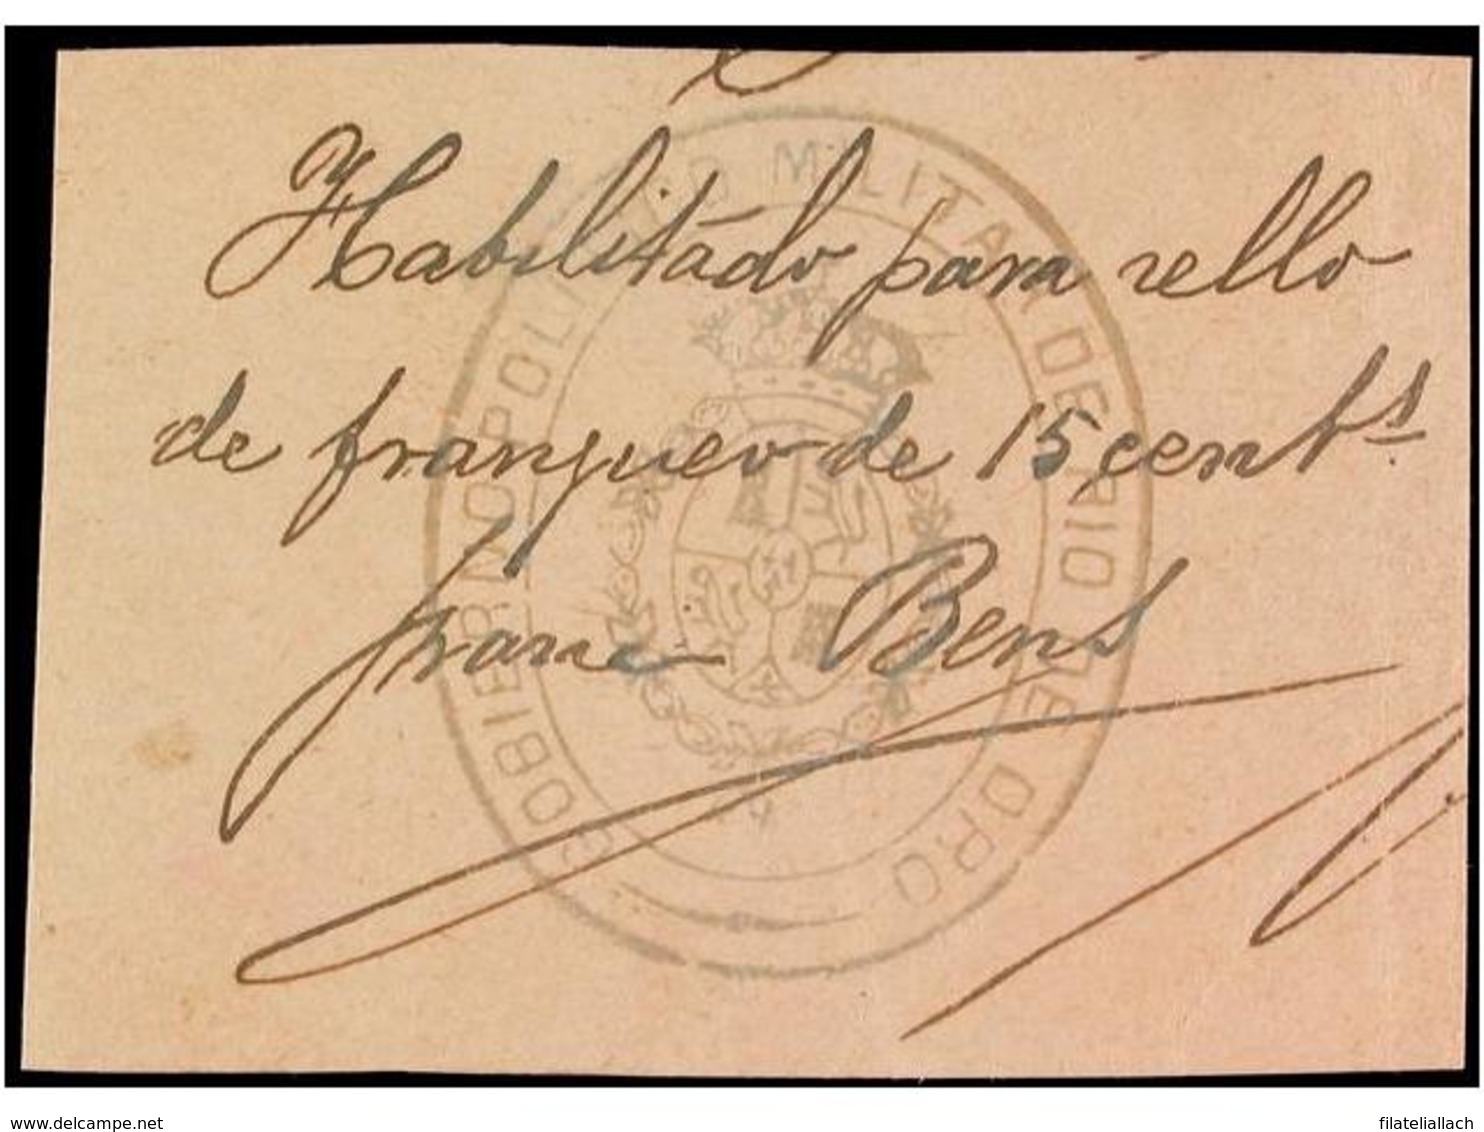 Habilitado para sello
de franqueo de 15 cents
Franco Bens
GOBIERNO POLITICO MILITAR DE RIO DE ORO
delcampe.net
filateliallach